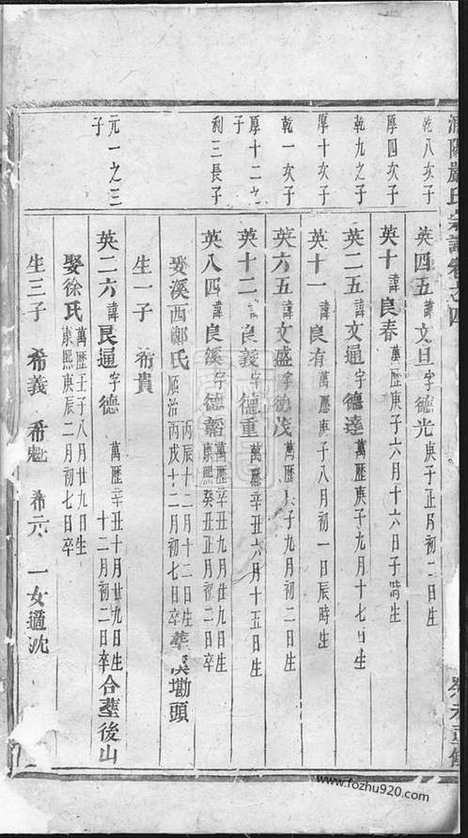 嚴氏宗譜卷之四
乾八次子
英四五諱文旦字德光 庚子正月初二日生
厚四次子
英十諱良春 萬歷庚子六月十六日子時生
乾九之子
英二五諱文通字德達 萬歷庚子九月十七日生
厚十次子
英十一諱良有 萬歷庚子八月初一日辰時生
乾一次子
英六五諱文盛字德茂 萬歷子九月初二日生
厚十二之子
英十二諱良義字德重 萬歷辛丑六月十五日生
利三長子
英八四諱良溪字德韜 萬歷辛丑九月廿九日生
康熙癸丑正月初二日卒
娶溪西鄭氏 丙辰十二月十二日生
順治丙戌十二月初七日卒 葬塢頭
生一子 希貴
元一之三子
英二六諱良通字德 萬歷辛丑十月廿九日生
十二月初二日卒 合塟後山
娶徐氏 萬歷壬子八月廿九日生
康熙庚辰二月初七日卒
生三子 希義 希魁 希六 一女適沈
www.fozhu920.com